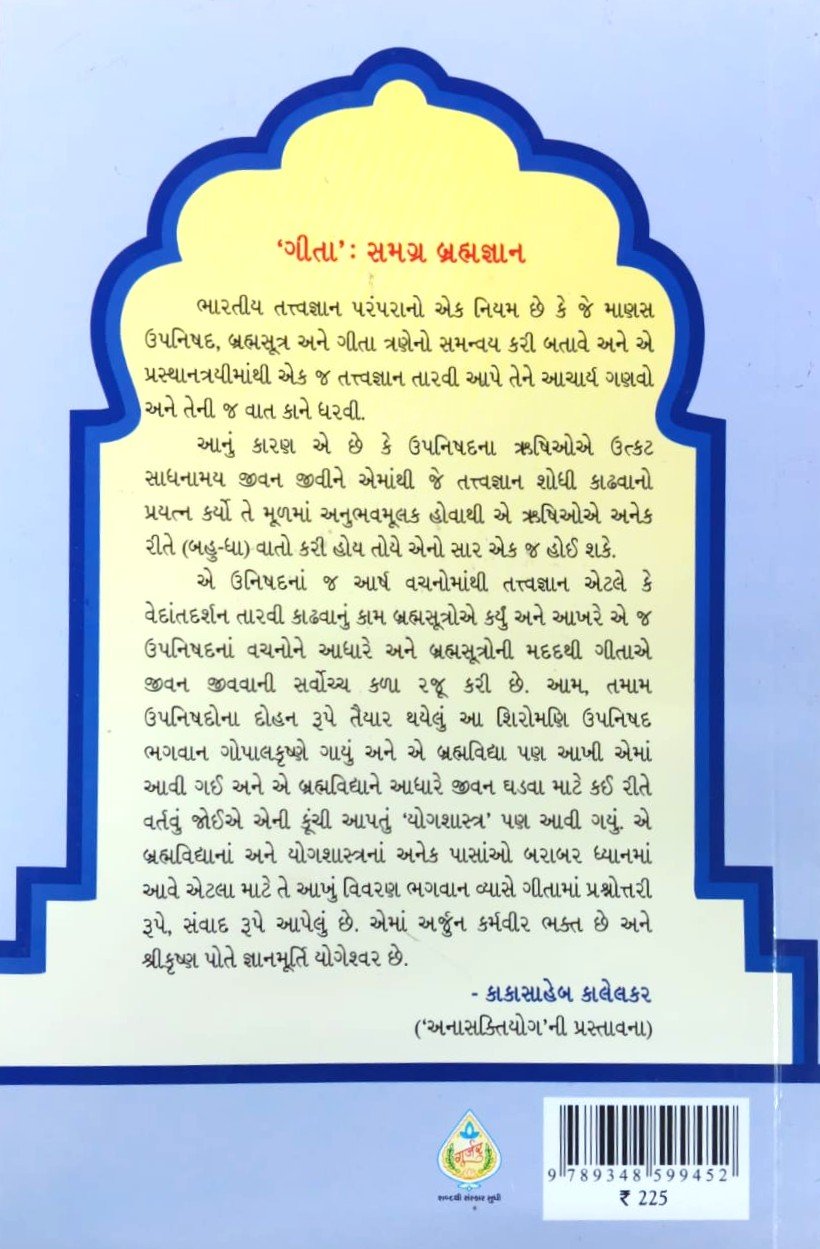 ‘ગીતા’ : સમગ્ર બ્રહ્મજ્ઞાન
ભારતીય તત્ત્વજ્ઞાન પરંપરાનો એક નિયમ છે કે જે માણસ
ઉપનિષદ, બ્રહ્મસૂત્ર અને ગીતા ત્રણેનો સમન્વય કરી બતાવે અને એ
પ્રસ્થાનત્રયીમાંથી એક જ તત્ત્વજ્ઞાન તારવી આપે તેને આચાર્ય ગણવો
અને તેની જ વાત કાને ધરવી.
આનું કારણ એ છે કે ઉપનિષદના ઋષિઓએ ઉત્કટ
સાધનામય જીવન જીવીને એમાંથી જે તત્ત્વજ્ઞાન શોધી કાઢવાનો
પ્રયત્ન કર્યો તે મૂળમાં અનુભવમૂલક હોવાથી એ ઋષિઓએ અનેક
રીતે (બહુ-ધા) વાતો કરી હોય તોયે એનો સાર એક જ હોઈ શકે.
એ ઉનિષદનાં જ આર્ષ વચનોમાંથી તત્ત્વજ્ઞાન એટલે કે
વેદાંતદર્શન તારવી કાઢવાનું કામ બ્રહ્મસૂત્રોએ કર્યું અને આખરે એ જ
ઉપનિષદનાં વચનોને આધારે અને બ્રહ્મસૂત્રોની મદદથી ગીતાએ
જીવન જીવવાની સર્વોચ્ચ કળા રજૂ કરી છે. આમ, તમામ
ઉપનિષદોના દોહન રૂપે તૈયાર થયેલું આ શિરોમણિ ઉપનિષદ
ભગવાન ગોપાલકૃષ્ણે ગાયું અને એ બ્રહ્મવિદ્યા પણ આખી એમાં
આવી ગઈ અને એ બ્રહ્મવિદ્યાને આધારે જીવન ઘડવા માટે કઈ રીતે
વર્તવું જોઈએ એની કૂંચી આપતું ‘યોગશાસ્ત્ર’ પણ આવી ગયું. એ
બ્રહ્મવિદ્યાનાં અને યોગશાસ્ત્રનાં અનેક પાસાંઓ બરાબર ધ્યાનમાં
આવે એટલા માટે તે આખું વિવરણ ભગવાન વ્યાસે ગીતામાં પ્રશ્નોત્તરી
રૂપે, સંવાદ રૂપે આપેલું છે. એમાં અર્જુન કર્મવીર ભક્ત છે અને
શ્રીકૃષ્ણ પોતે જ્ઞાનમૂર્તિ યોગેશ્વર છે.
- કાકાસાહેબ કાલેલકર
(‘અનાસક્તિયોગ’ની પ્રસ્તાવના)
ગુર્જર
શબ્દથી સંસ્કાર સુધી
9 789348 599452
₹ 225